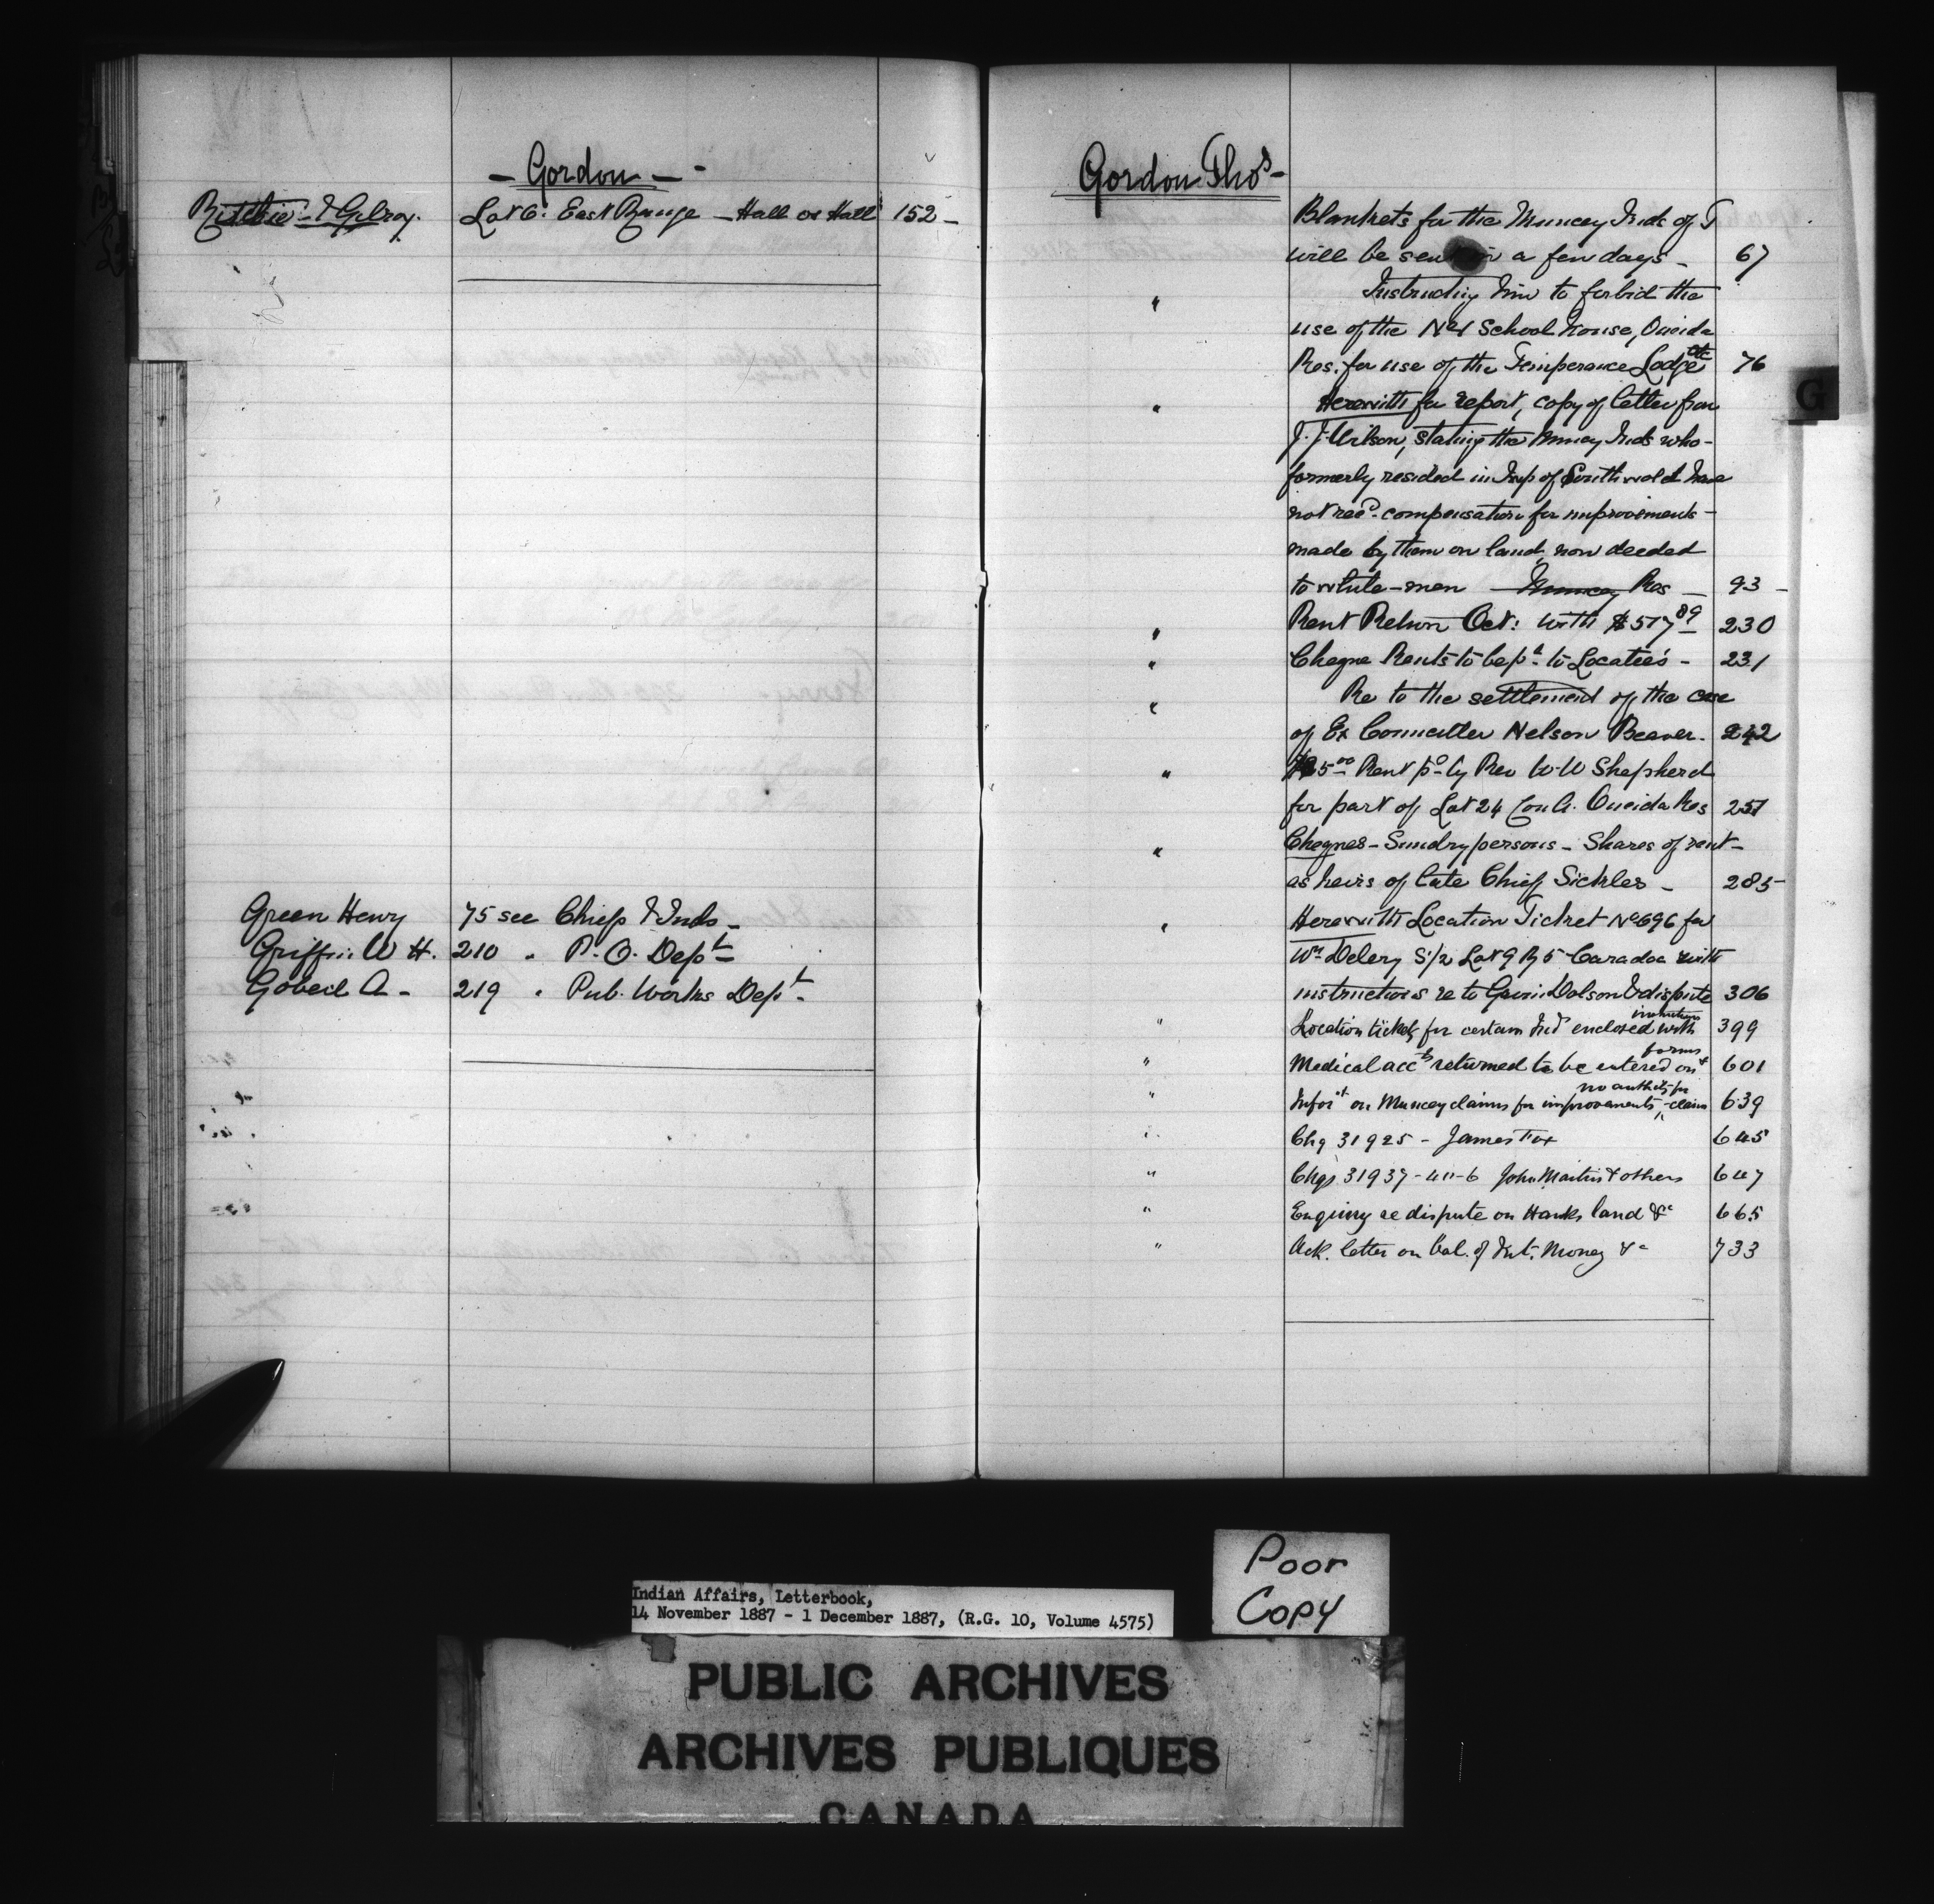 - Gordon -
Ritchie & Gilroy. Lot 6. East Range - Hall or Hall 152 -
Green Henry 75 see Chiefs & Inds -
Griffin W H. 210 " P. O. Dept
Gobeil A - 219 " Pub. Works Dept.
Gordon Thos -
Blankets for the Muncey Inds of T
will be sent in a few days - 67
" Instructing him to forbid the
use of the No 1 School house, Oneida
Res. for use of the Temperance Lodge etc 76
" Herewith for report, copy of letter from
J. J. Wilson, stating the Muncey Inds who -
formerly resided in Twp of Southwold have
not recd. compensation for improvements -
made by them on land, now deeded
to white-men - Muncey Res - 93 -
" Rent Return Oct: with $517 89 230
" Cheque Rents to be pd to Locatees - 231
" Re to the settlement of the case
of Ex Councillor Nelson Beaver. 242
" 5 00 Rent pd by Rev W. W Shepherd
for part of Lot 24 Con A. Oneida Res 257
" Cheques - Sundry persons - Shares of rent -
as heirs of late Chief Sickles - 285 -
" Herewith Location Ticket No 696 for
Wm Delery S 1/2 Lot 9 R 5 Caradoc with
instructions re to Dolson & dispute 306
" Location tickets for certain Inds enclosed with instructions 399
" Medical accts returned to be entered on forms 601
" Infort on Muncey claims for improvements, no authority for claim 639
" Chq 31925 - James Fox 645
" Chqs 31937-40-6 John Martin & others 647
" Enquiry re dispute on Hanks land &c 665
" Ack. letter on bal. of Int. Money &c 733
G
Poor
Copy
Indian Affairs, Letterbook,
14 November 1887 - 1 December 1887, (R.G. 10, Volume 4575)
PUBLIC ARCHIVES
ARCHIVES PUBLIQUES
CANADA